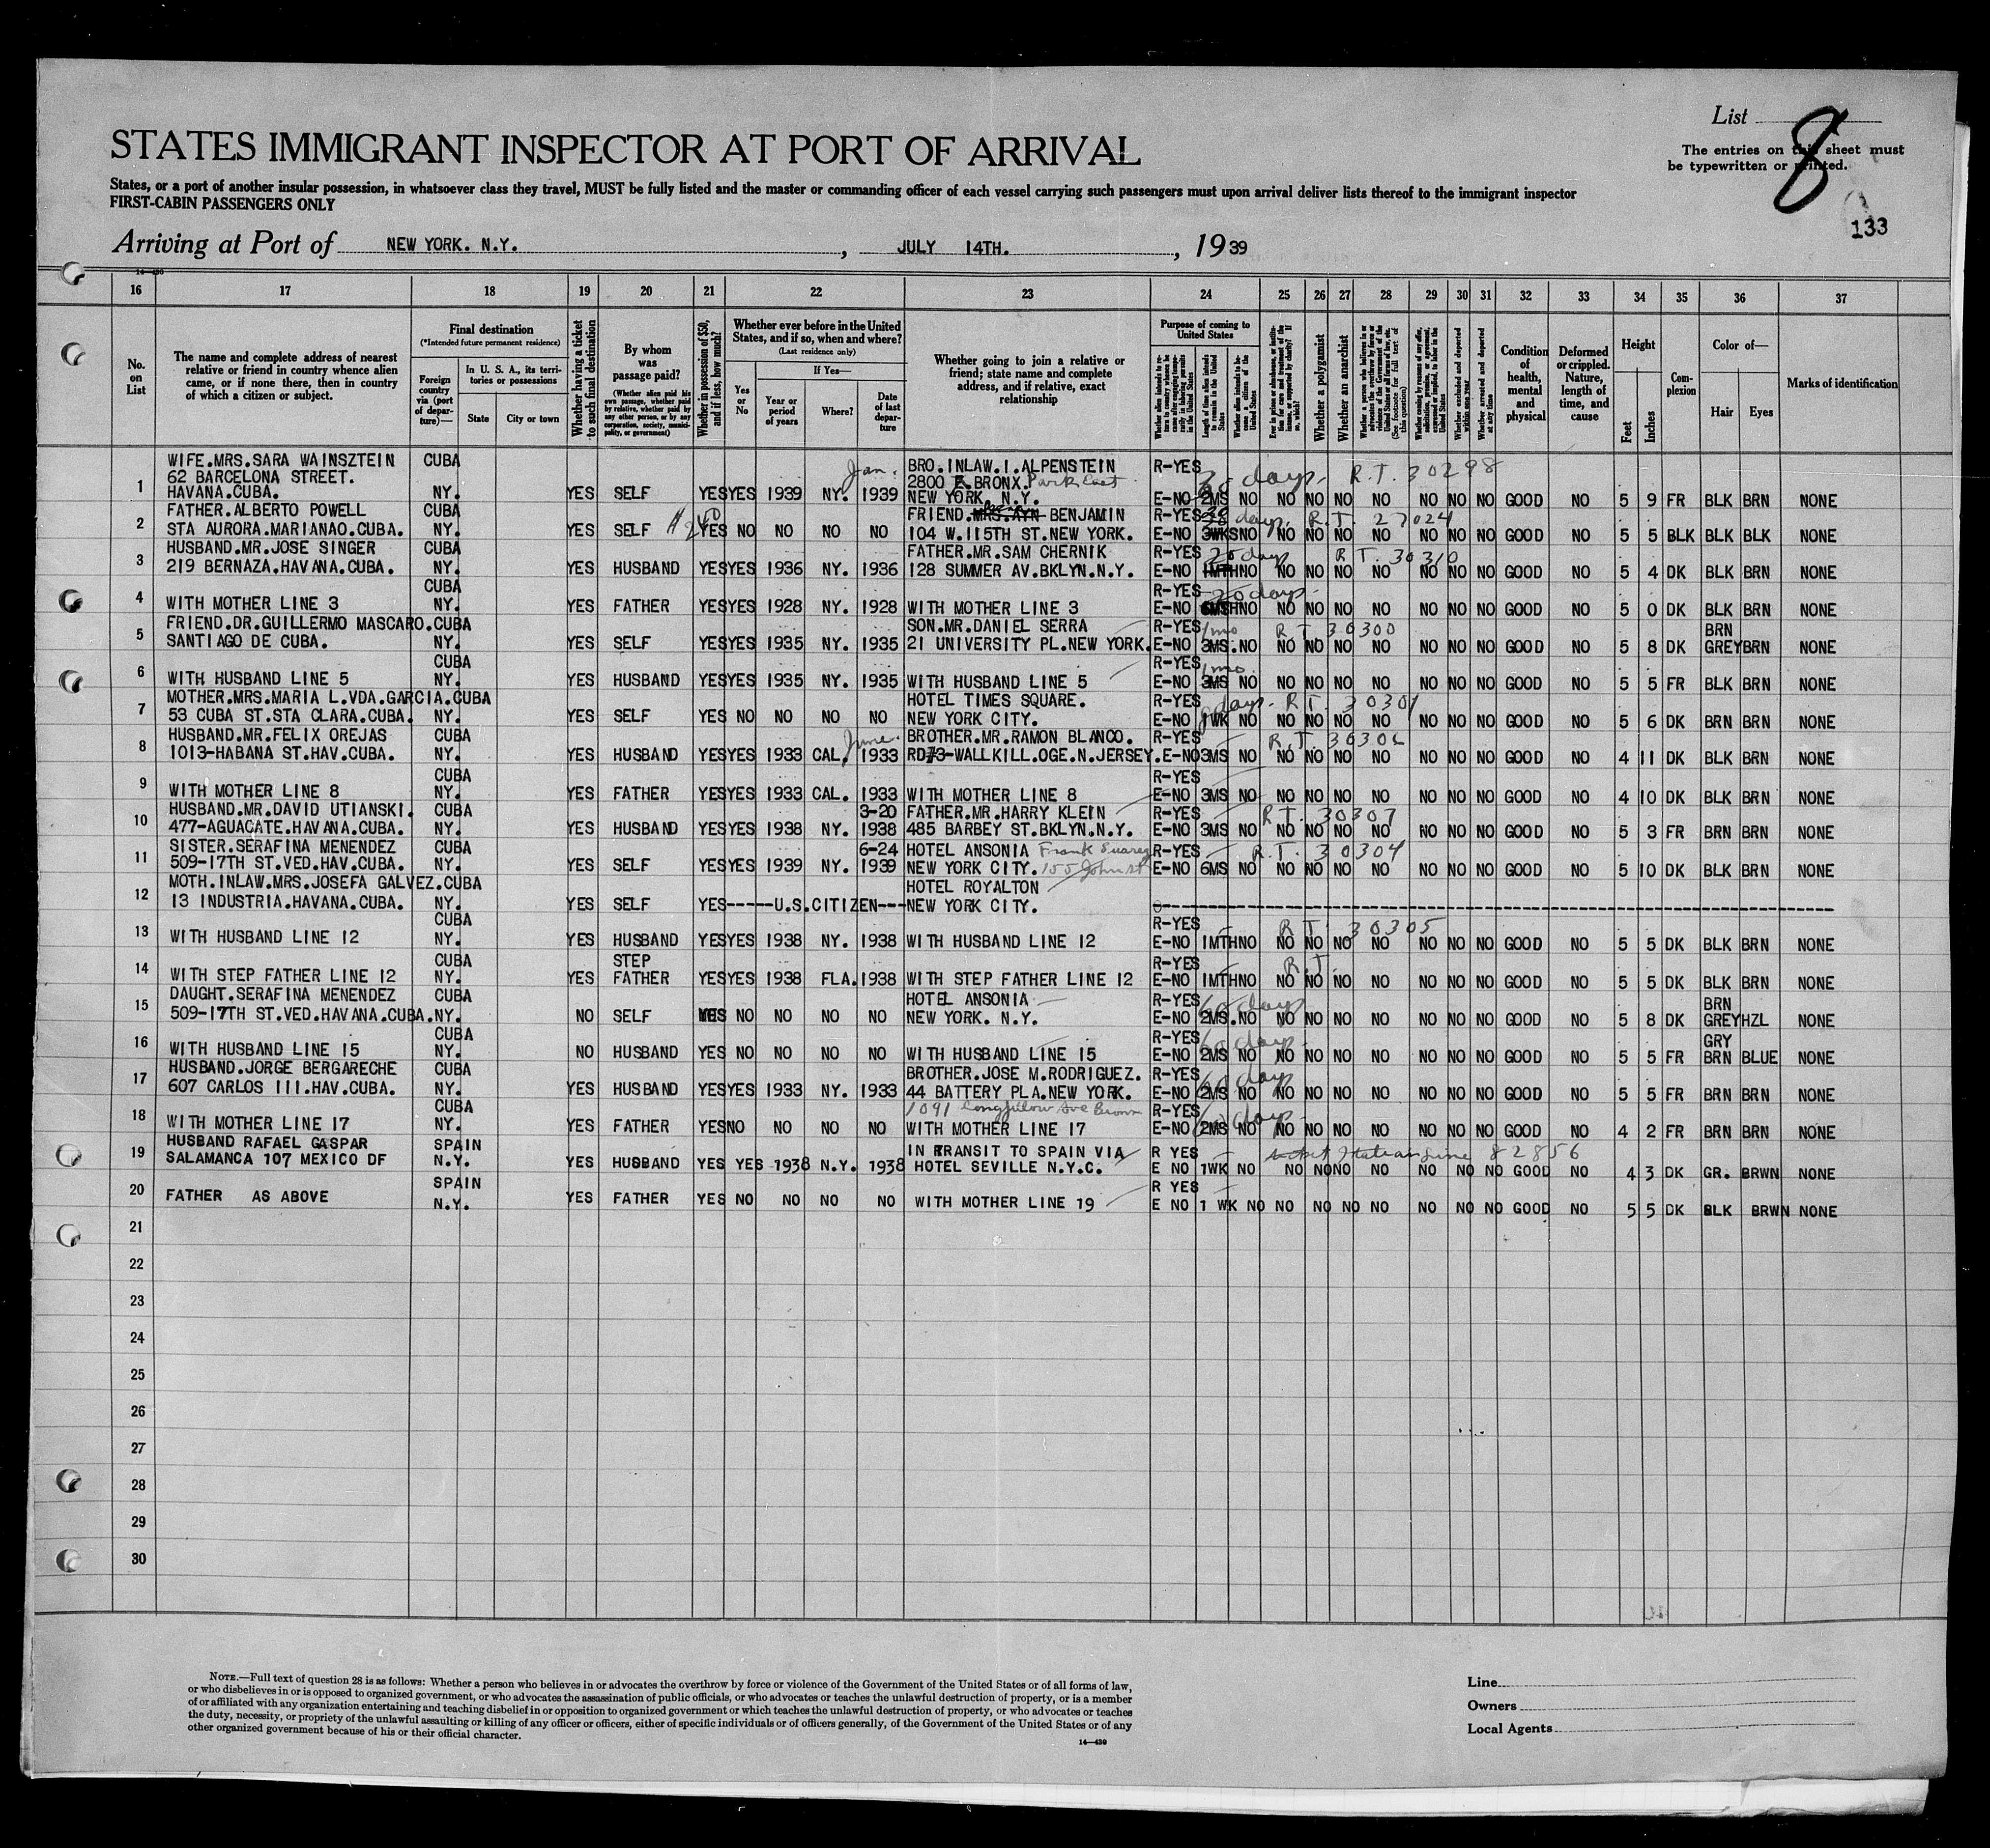 List 8
The entries on this sheet must
be typewritten or printed.
133
STATES IMMIGRANT INSPECTOR AT PORT OF ARRIVAL
States, or a port of another insular possession, in whatsoever class they travel, MUST be fully listed and the master or commanding officer of each vessel carrying such passengers must upon arrival deliver lists thereof to the immigrant inspector
FIRST-CABIN PASSENGERS ONLY
Arriving at Port of NEW YORK. N.Y. , JULY 14TH. , 1939
16 17 18 19 20 21 22 23 24 25 26 27 28 29 30 31 32 33 34 35 36 37
No. on List
The name and complete address of nearest relative or friend in country whence alien came, or if none there, then in country of which a citizen or subject.
Final destination
(*Intended future permanent residence)
Foreign country via (port of departure)—
In U. S. A., its territories or possessions
State City or town
Whether having a ticket to such final destination
By whom was passage paid?
(Whether alien paid his own passage, whether paid by relative, whether paid by any other person, or by any corporation, society, municipality, or government)
Whether in possession of $50, and if less, how much?
Whether ever before in the United States, and if so, when and where?
(Last residence only)
Yes or No
If Yes—
Year or period of years Where? Date of last departure
Whether going to join a relative or friend; state name and complete address, and if relative, exact relationship
Purpose of coming to United States
Whether a polygamist
Whether an anarchist
Condition of health, mental and physical
Deformed or crippled. Nature, length of time, and cause
Height
Feet Inches
Complexion
Color of—
Hair Eyes
Marks of identification
WIFE.MRS.SARA WAINSZTEIN CUBA Jan. BRO.INLAW.I.ALPENSTEIN R-YES
62 BARCELONA STREET. 2800 BRONX. Park East days. R.T. 30298
1 HAVANA.CUBA. NY. YES SELF YES YES 1939 NY. 1939 NEW YORK. N.Y. E-NO 2MS NO NO NO NO NO NO NO NO GOOD NO 5 9 FR BLK BRN NONE
FATHER.ALBERTO POWELL CUBA FRIEND. BENJAMIN R-YES days. R.T. 27024
2 STA AURORA.MARIANAO.CUBA. NY. YES SELF YES NO NO NO NO 104 W.115TH ST.NEW YORK. E-NO 3WKS NO NO NO NO NO NO NO NO GOOD NO 5 5 BLK BLK BLK NONE
HUSBAND.MR.JOSE SINGER CUBA FATHER.MR.SAM CHERNIK R-YES 20 days R.T. 30310
3 219 BERNAZA.HAVANA.CUBA. NY. YES HUSBAND YES YES 1936 NY. 1936 128 SUMMER AV.BKLYN.N.Y. E-NO 1MTH NO NO NO NO NO NO NO NO GOOD NO 5 4 DK BLK BRN NONE
CUBA R-YES 20 days.
4 WITH MOTHER LINE 3 NY. YES FATHER YES YES 1928 NY. 1928 WITH MOTHER LINE 3 E-NO NO NO NO NO NO NO NO NO GOOD NO 5 0 DK BLK BRN NONE
FRIEND.DR.GUILLERMO MASCARO.CUBA SON.MR.DANIEL SERRA R-YES 1 mo R.T. 30300 BRN
5 SANTIAGO DE CUBA. NY. YES SELF YES YES 1935 NY. 1935 21 UNIVERSITY PL.NEW YORK. E-NO 3MS. NO NO NO NO NO NO NO NO GOOD NO 5 8 DK GREY BRN NONE
CUBA R-YES 1 mo.
6 WITH HUSBAND LINE 5 NY. YES HUSBAND YES YES 1935 NY. 1935 WITH HUSBAND LINE 5 E-NO 3MS NO NO NO NO NO NO NO NO GOOD NO 5 5 FR BLK BRN NONE
MOTHER.MRS.MARIA L.VDA.GARCIA.CUBA HOTEL TIMES SQUARE. R-YES days. R.T. 30301
7 53 CUBA ST.STA CLARA.CUBA. NY. YES SELF YES NO NO NO NO NEW YORK CITY. E-NO 1WK NO NO NO NO NO NO NO NO GOOD NO 5 6 DK BRN BRN NONE
HUSBAND.MR.FELIX OREJAS CUBA June. BROTHER.MR.RAMON BLANCO. R-YES R.T. 30306
8 1013-HABANA ST.HAV.CUBA. NY. YES HUSBAND YES YES 1933 CAL. 1933 RD#3-WALLKILL.OGE.N.JERSEY. E-NO 3MS NO NO NO NO NO NO NO NO GOOD NO 4 11 DK BLK BRN NONE
CUBA R-YES
9 WITH MOTHER LINE 8 NY. YES FATHER YES YES 1933 CAL. 1933 WITH MOTHER LINE 8 E-NO 3MS NO NO NO NO NO NO NO NO GOOD NO 4 10 DK BLK BRN NONE
HUSBAND.MR.DAVID UTIANSKI. CUBA 3-20 FATHER.MR.HARRY KLEIN R-YES R.T. 30307
10 477-AGUACATE.HAVANA.CUBA. NY. YES HUSBAND YES YES 1938 NY. 1938 485 BARBEY ST.BKLYN.N.Y. E-NO 3MS NO NO NO NO NO NO NO NO GOOD NO 5 3 FR BRN BRN NONE
SISTER.SERAFINA MENENDEZ CUBA 6-24 HOTEL ANSONIA Frank Suarez R-YES R.T. 30304
11 509-17TH ST.VED.HAV.CUBA. NY. YES SELF YES YES 1939 NY. 1939 NEW YORK CITY. 155 John St E-NO 6MS NO NO NO NO NO NO NO NO GOOD NO 5 10 DK BLK BRN NONE
MOTH.INLAW.MRS.JOSEFA GALVEZ.CUBA HOTEL ROYALTON
12 13 INDUSTRIA.HAVANA.CUBA. NY. YES SELF YES-----U.S.CITIZEN---NEW YORK CITY.
CUBA R-YES R.T. 30305
13 WITH HUSBAND LINE 12 NY. YES HUSBAND YES YES 1938 NY. 1938 WITH HUSBAND LINE 12 E-NO 1MTH NO NO NO NO NO NO NO NO GOOD NO 5 5 DK BLK BRN NONE
CUBA STEP R-YES R.T.
14 WITH STEP FATHER LINE 12 NY. YES FATHER YES YES 1938 FLA. 1938 WITH STEP FATHER LINE 12 E-NO 1MTH NO NO NO NO NO NO NO NO GOOD NO 5 5 DK BLK BRN NONE
DAUGHT.SERAFINA MENENDEZ CUBA HOTEL ANSONIA R-YES 60 days BRN
15 509-17TH ST.VED.HAVANA.CUBA. NY. NO SELF YES NO NO NO NO NEW YORK. N.Y. E-NO 2MS. NO NO NO NO NO NO NO NO GOOD NO 5 8 DK GREY HZL NONE
CUBA R-YES 60 days. GRY
16 WITH HUSBAND LINE 15 NY. NO HUSBAND YES NO NO NO NO WITH HUSBAND LINE 15 E-NO 2MS NO NO NO NO NO NO NO NO GOOD NO 5 5 FR BRN BLUE NONE
HUSBAND.JORGE BERGARECHE CUBA BROTHER.JOSE M.RODRIGUEZ. R-YES 60 days
17 607 CARLOS III.HAV.CUBA. NY. YES HUSBAND YES YES 1933 NY. 1933 44 BATTERY PLA.NEW YORK. E-NO 2MS NO NO NO NO NO NO NO NO GOOD NO 5 5 FR BRN BRN NONE
CUBA 1091 Longfellow Ave Bronx R-YES 60 days.
18 WITH MOTHER LINE 17 NY. YES FATHER YES NO NO NO NO WITH MOTHER LINE 17 E-NO 2MS NO NO NO NO NO NO NO NO GOOD NO 4 2 FR BRN BRN NONE
HUSBAND RAFAEL GASPAR SPAIN IN TRANSIT TO SPAIN VIA R YES ticket Italian Line 82856
19 SALAMANCA 107 MEXICO DF N.Y. YES HUSBAND YES YES 1938 N.Y. 1938 HOTEL SEVILLE N.Y.C. E NO 1WK NO NO NO NO NO NO NO NO GOOD NO 4 3 DK GR. BRWN NONE
SPAIN R YES
20 FATHER AS ABOVE N.Y. YES FATHER YES NO NO NO NO WITH MOTHER LINE 19 E NO 1 WK NO NO NO NO NO NO NO NO GOOD NO 5 5 DK BLK BRWN NONE
21
22
23
24
25
26
27
28
29
30
NOTE.—Full text of question 28 is as follows: Whether a person who believes in or advocates the overthrow by force or violence of the Government of the United States or of all forms of law,
or who disbelieves in or is opposed to organized government, or who advocates the assassination of public officials, or who advocates or teaches the unlawful destruction of property, or is a member
of or affiliated with any organization entertaining and teaching disbelief in or opposition to organized government or which teaches the unlawful destruction of property, or who advocates or teaches
the duty, necessity, or propriety of the unlawful assaulting or killing of any officer or officers, either of specific individuals or of officers generally, of the Government of the United States or of any
other organized government because of his or their official character.
14—430
Line
Owners
Local Agents